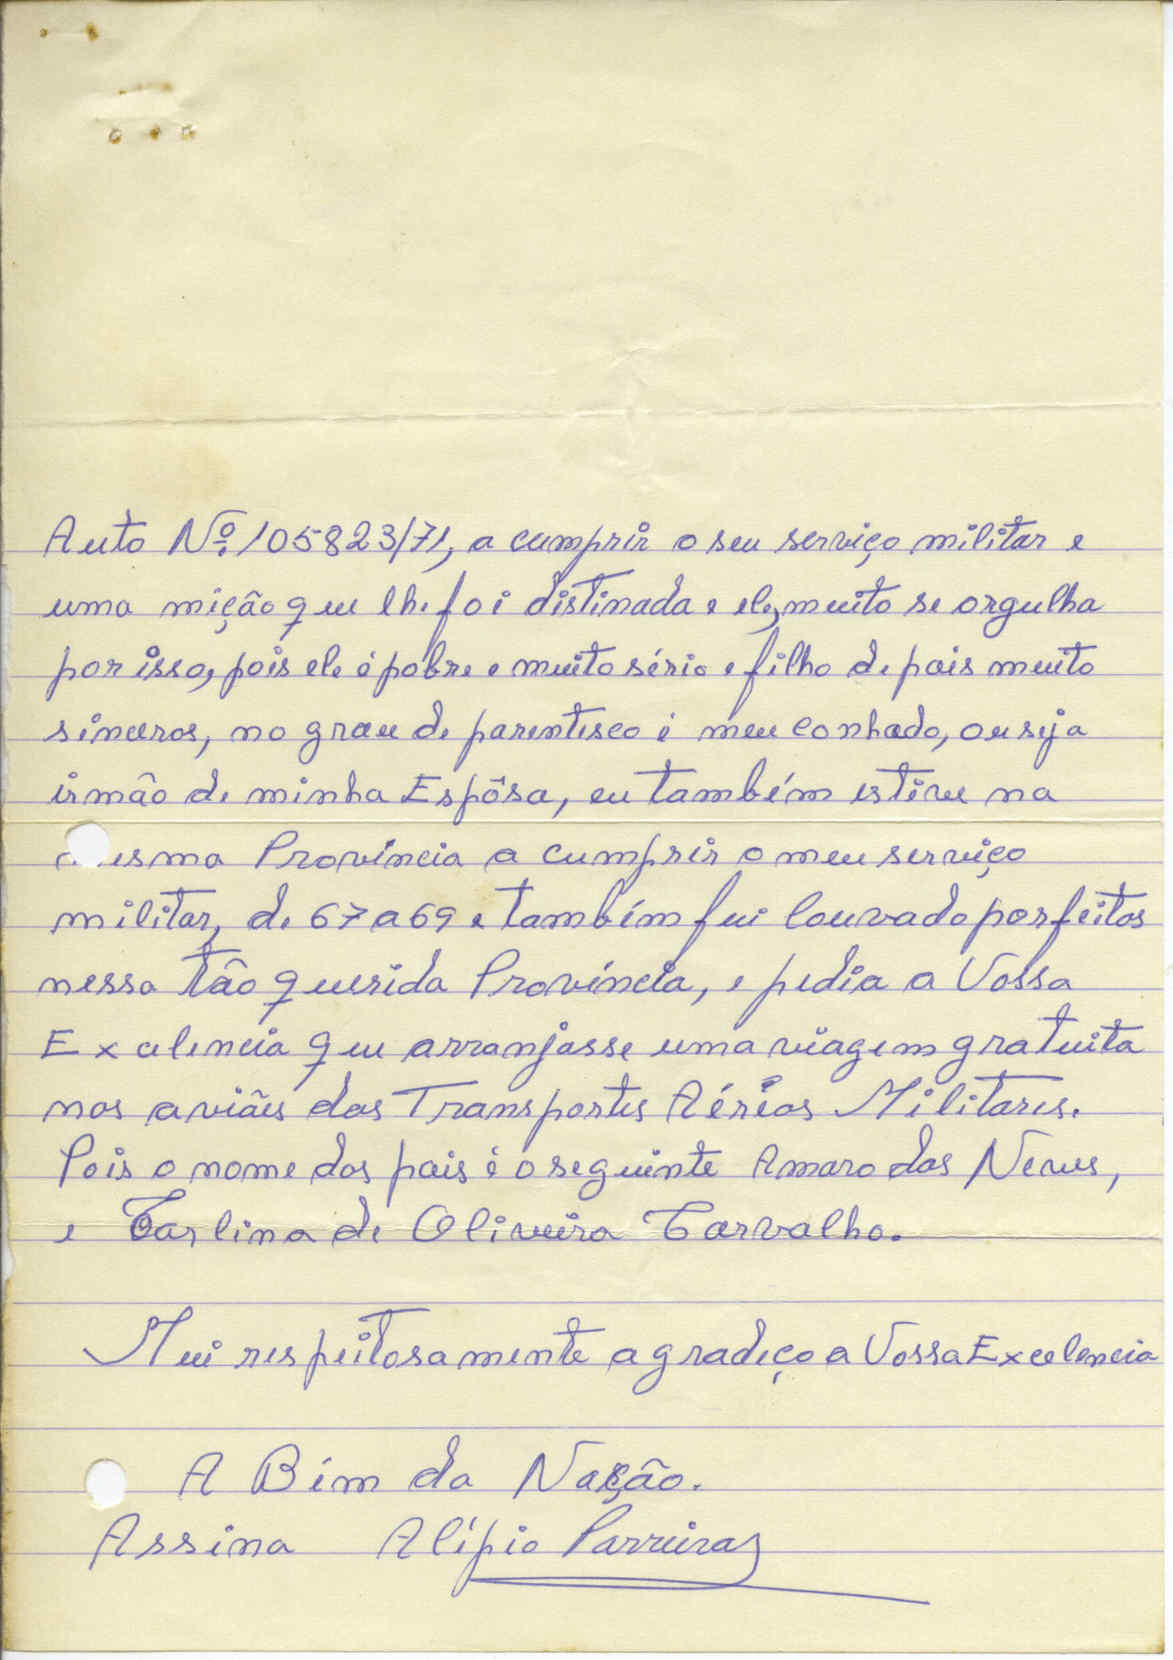 Auto Nº 105823/71, a cumprir o seu serviço militar e
uma mição que lhe foi distinada e ele, muito se orgulha
por isso, pois ele é pobre e muito sério e filho de pais muito
sinceros, no grau de parentesco é meu conhado, ou seja
irmão de minha Espôsa, eu também estive na
mesma Província a cumprir o meu serviço
militar, de 67 a 69 e também fui louvado por feitos
nessa tão querida Província, e pedia a Vossa
Excelencia que arranjasse uma viagem gratuita
nos aviães dos Transportes Aéreos Militares.
Pois o nome dos pais é o seguinte Amaro das Neves,
e Carlina de Oliveira Carvalho.
Mui respeitosamente agradeço a Vossa Excelencia
A Bém da Nação.
Assina Alípio Parreira